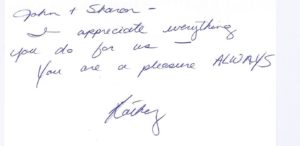 John + Sharon -
I appreciate everything
you do for us —
You are a pleasure ALWAYS
Kathy